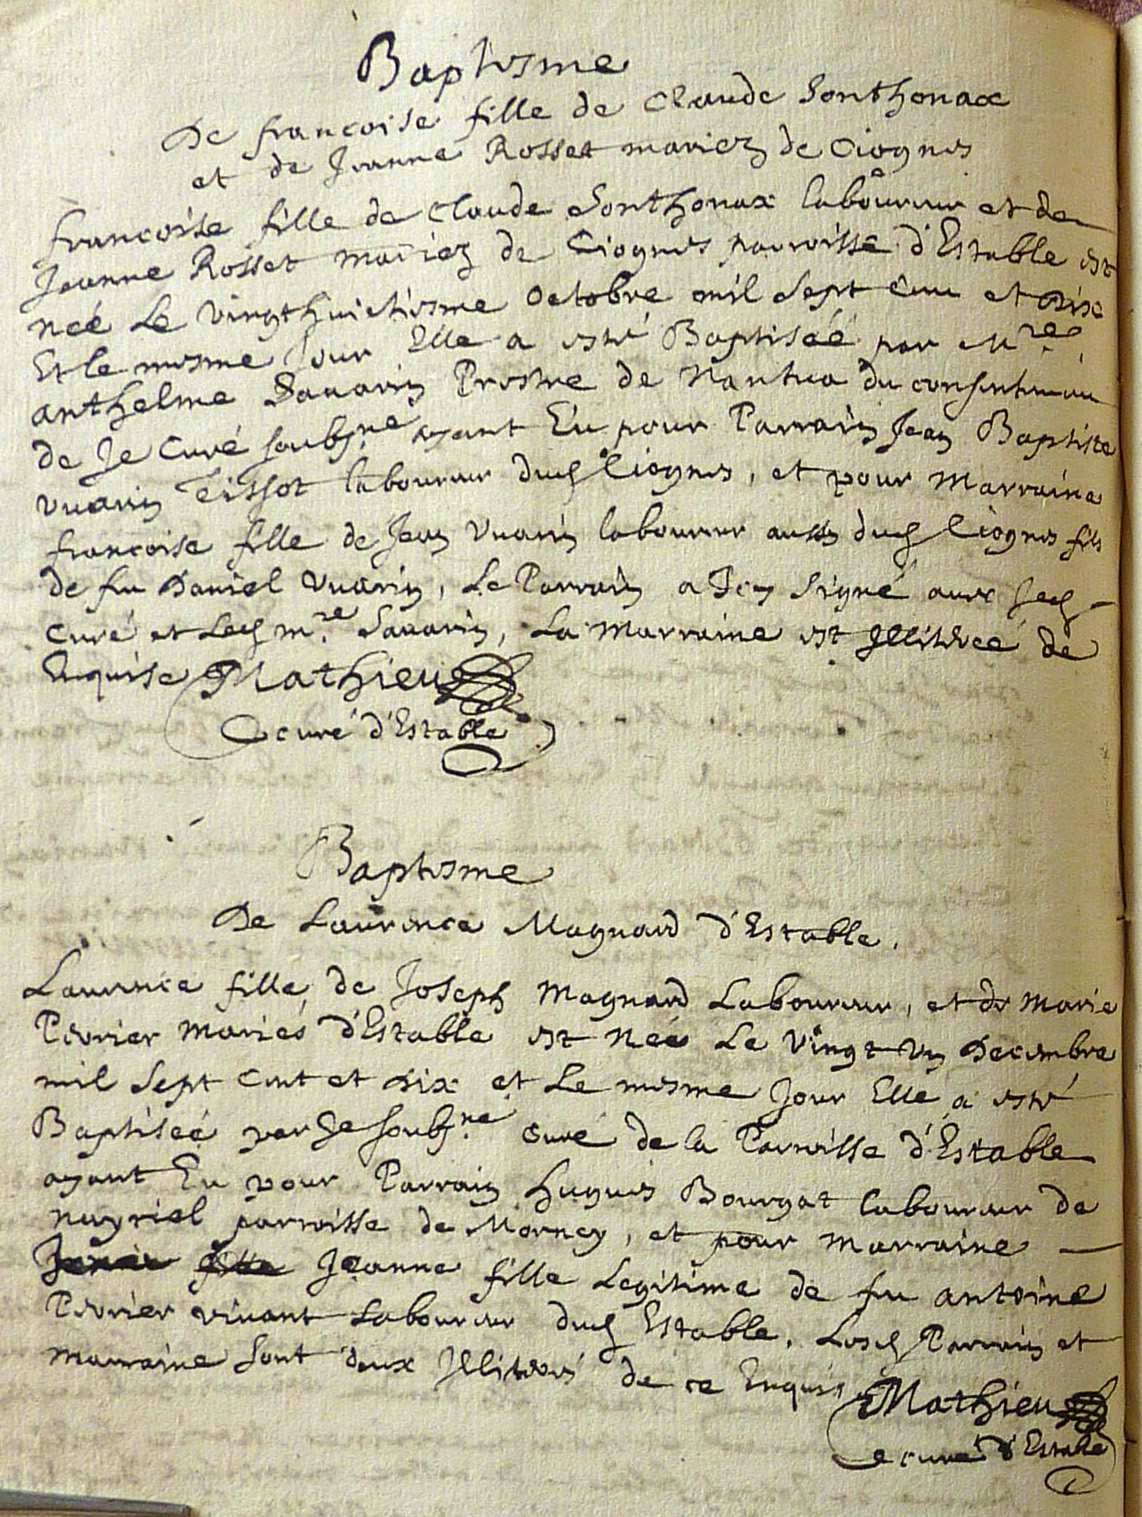 Baptesme
De francoise fille de Claude Sonthonax
et de Jeanne Rosset mariez de Ciognes
francoise fille de Claude Sonthonax laboureur et de
Jeanne Rosset mariez de Ciognes parroisse d'Estable est
néé Le vingthuictiesme octobre mil sept cent et dix
Et le mesme Jour Elle a esté Baptiséé par Mre
anthelme Savarin Prestre de Nantua du consentement
de Je Curé soubsne ayant Eu pour Parrain Jean Baptiste
vuarin Tissot laboureur dud Ciognes, et pour Marraine
francoise fille de Jean Vuarin laboureur aussy dud Ciognes fils
de feu Daniel Vuarin, Le Parrain a Icy signé avec Jed
Curé et Led mre Savarin, La Marraine est Jlliteréé de
Enquise Mathieu
curé d'Estable
Baptesme
De Laurence Magnard d'Estable.
Laurence fille de Joseph Magnard Laboureur, et de Marie
Pevrier Mariés d'Estable est Néé Le Vingt Un Decembre
mil sept cent et dix et Le mesme Jour Elle a esté
Baptiséé par Je soubsne Curé de la Parroisse d'Estable
ayant Eu pour Parrain Hugues Bourgat laboureur de
nayriel parroisse de Mornay, et pour Marraine
Jeanne fille Legitime de feu antoine
Pevrier vivant Laboureur dud Estable. Lesd Parrain et
Marraine sont deux Jlliterés de ce Enquis
Mathieu
curé d'Estable